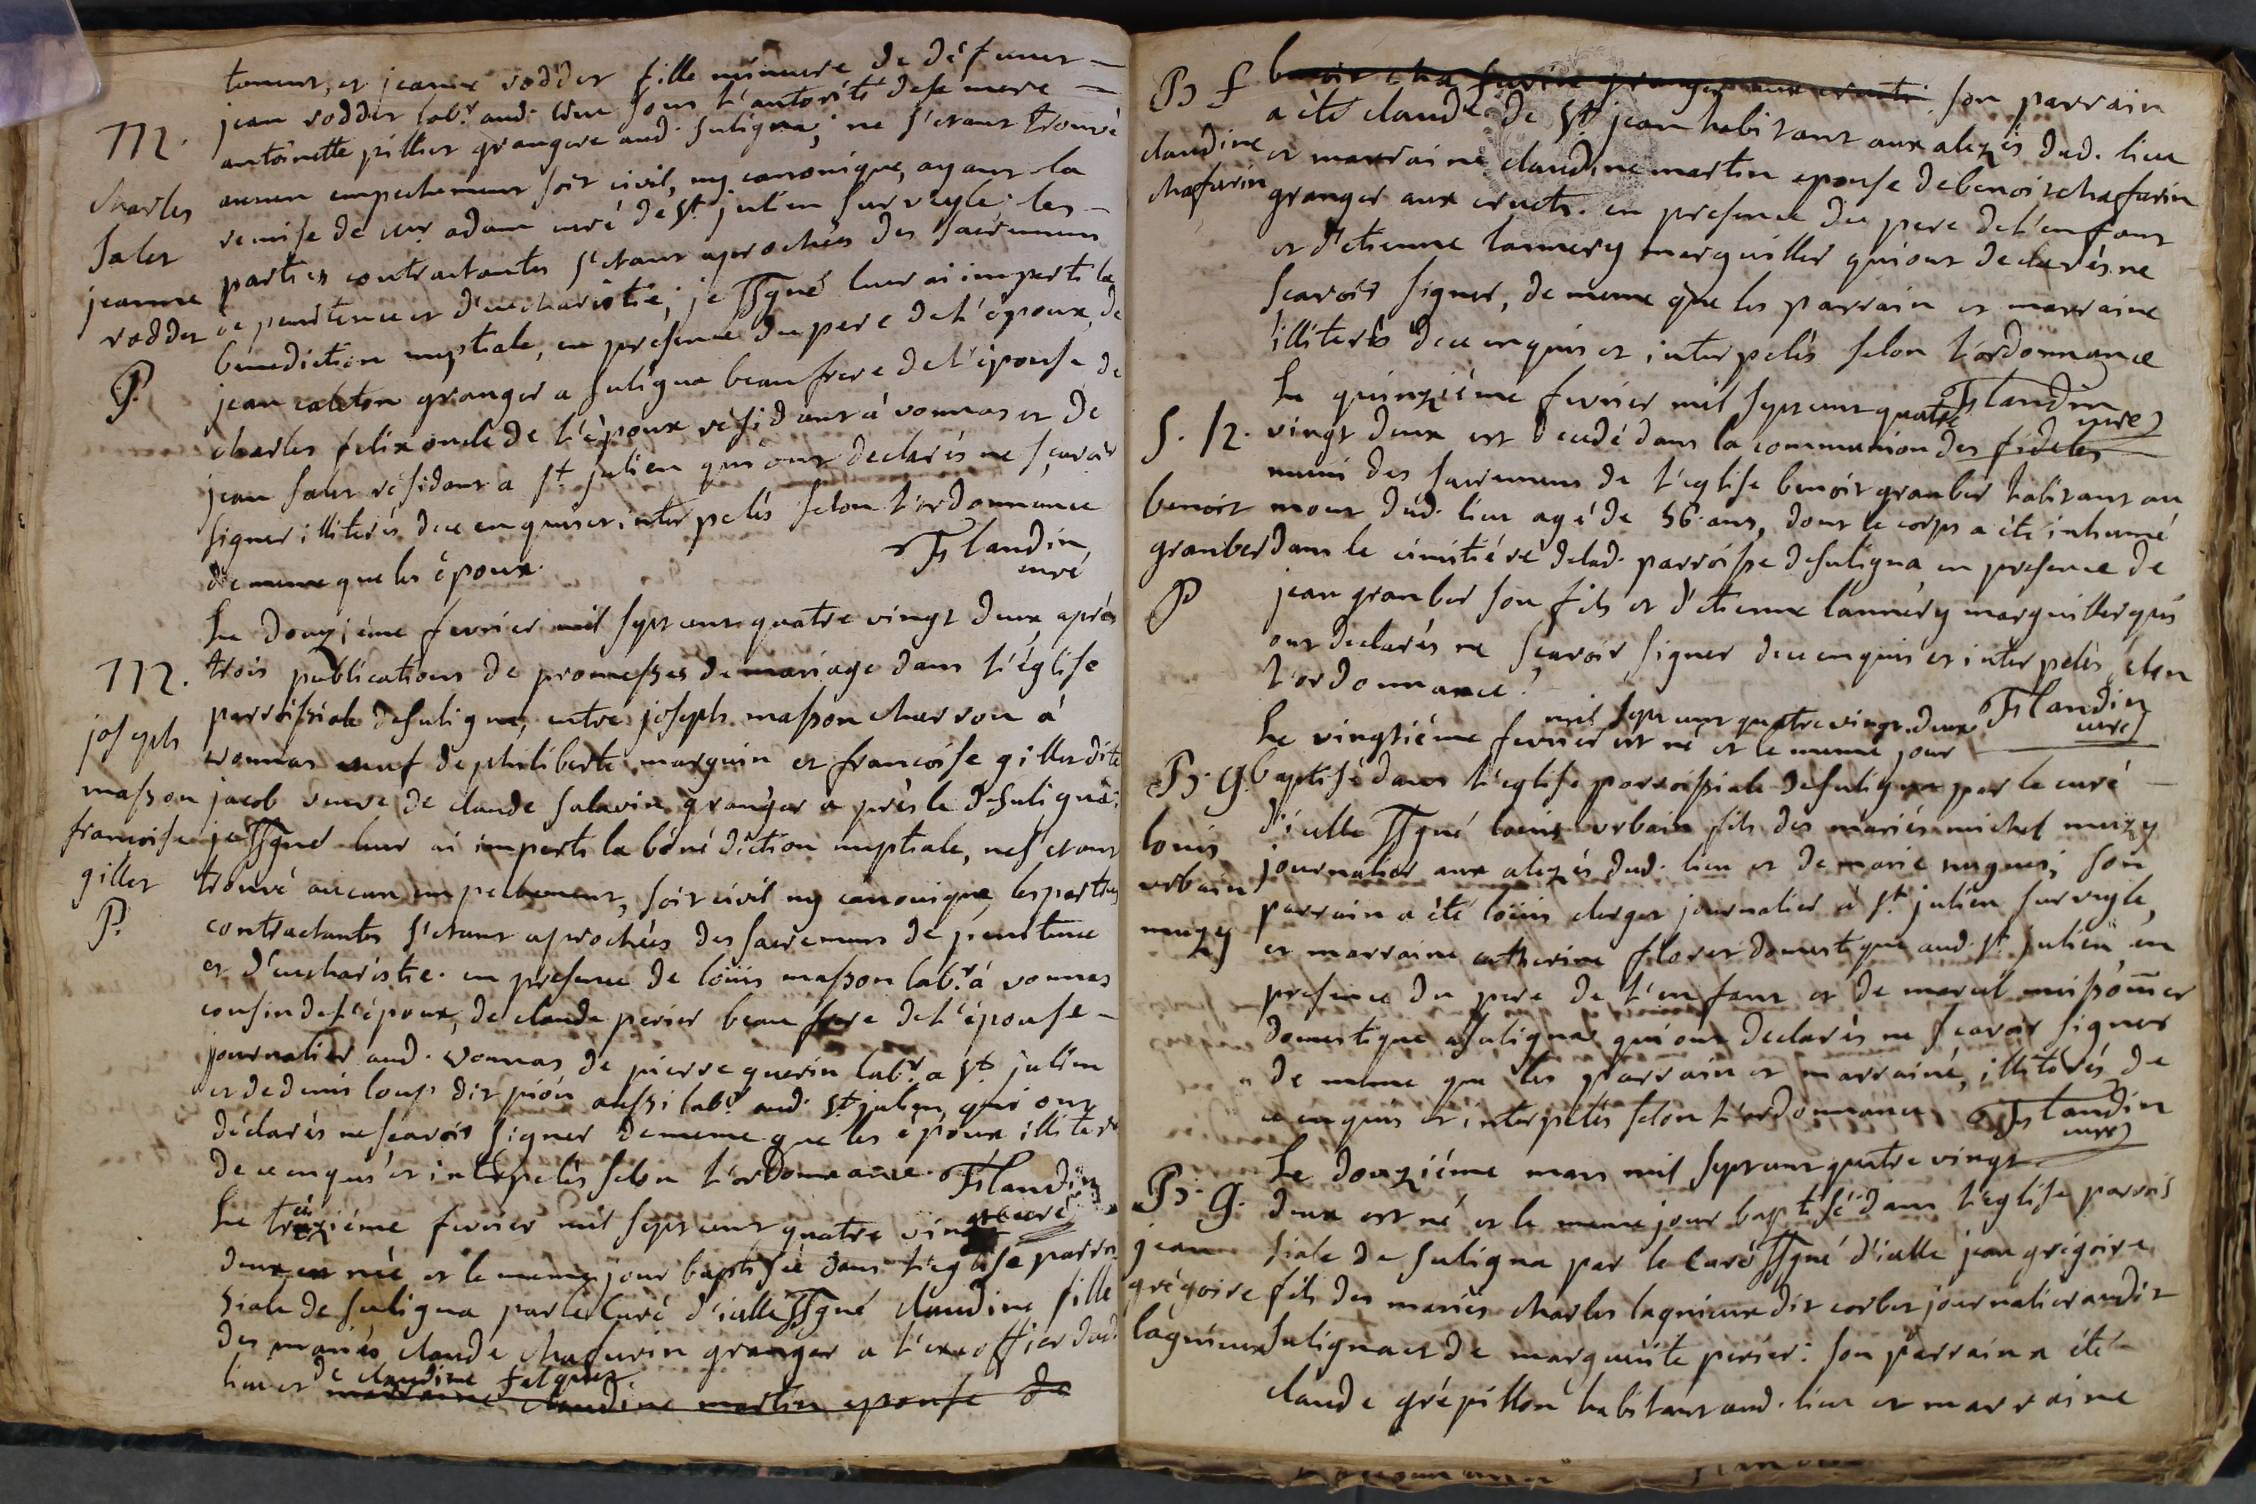 tement, et jeanne roddet fille mineure de défunt
jean roddet labr. aud. lieu sous l'autorité de sa mere
M. antoinette pillet grangere aud. suligna; ne s'étant trouvé
aucun empechement soit civil, ny canonique, ayant la
charles remise de mr. adam curé de st. julien sur veyle. les
salet parties contractantes s'étant aprochées des sacremens
jeanne de penitence et d'eucharistie; je ssgné leur ai imparti la
roddet benediction nuptiale, en presence du pere de l'époux, de
P. jean caleton granger a suligna beaufrere de l'épouse de
charles felix oncle de l'époux résidant à vonnas et de
jean salet résidant a st. julien qui ont declarés ne sçavoir
signer illiterés de ce enquis et interpelés selon l'ordonnance
de meme que les époux. Flandin
curé
Le douzième fevrier mil sept cent quatre vingt deux, aprés
M. trois publications de promesses de mariage dans l'église
parroissiale de suligna, entre joseph masson charron á
joseph vonnas veuf de philiberte marguin et francoise gillet dite
masson jacob veuve de claude salavin granger a prés le de suligna:
francoise je ssgné leur ai imparti la bénédiction nuptiale, ne s'étant
gillet trouvé aucun empechement, soit civil ny canonique, les parties
P. contractantes s'étant aprochées des sacremens de penitence
et d'eucharistie. en presence de loüis masson labr. à vonnas
cousin de l'époux, de claude perier beau frere de l'épouse
journalier aud. vonnas, de pierre guerin labr. a st. julien
et de denis loup dit pión aussi labr. aud. st. julien, qui ont
déclarés ne sçavoir signer de meme que les époux illiterés
de ce enquis et interpelés selon l'ordonnance. Flandin
curé
Le treizième fevrier mil sept cent quatre vingt
deux est née et le meme jour baptisée dans l'eglise parrois
siale de suligna par le curé d'icelle ssgné claudine fille
des mariés claude chafurin granger a l'ex dud.
lieu et de claudine
marraine claudine martin epouse de
B. f benoit chafurin granger aux cruets. son parrain
a été claude de st jean habitant aux alezés dud. lieu
claudine et marraine claudine martin epouse de benoit chaffurin
chafurin granger aux cruets. en presence du pere de l'enfant
et d'etienne lannery marguiller qui ont declarés ne
scavoir signer, de meme que les parrain et marraine
illiterés de ce enquis et interpelés selon l'ordonnance
Flandin
curé
Le quinzième fevrier mil sept cent quatre
S. h. vingt deux est decedé dans la communion des fideles
muni des sacremens de l'eglise benoit granber habitant au
benoit mont dud. lieu agé de 56. ans, dont le corps a été inhumé
granber dans le cimitiére de lad. parroisse de suligna en presence de
P jean granber son fils et d'etienne lannery marguiller qui
ont declarés ne sçavoir signer de ce enquis et interpelés selon
l'ordonnance. Flandin
curé
mil sept cent quatre vingt deux
Le vingtiéme fevrier est né et le meme jour
B. G. baptisé dans l'eglise parroissiale de suligna par le curé
d'icelle ssgné louis urbain fils des mariés michel muzy
louis journalier aux alezés dud. lieu et de marie nugues; son
urbain parrain a été loüis clerget journalier á st. julien sur veyle,
muzy et marraine catherine floret domestique aud. st. julien en
presence du pere de l'enfant et de marcel moissonnier
domestique a suligna qui ont declarés ne sçavoir signer
de meme que les parrain et marraine, illiterés de
ce enquis et interpelés selon l'ordonnance Flandin
curé
Le douzième mars mil sept cent quatre vingt
B. G. deux est né et le meme jour baptisé dans l'eglise parrois
jean siale de suligna par le curé ssgné d'icelle jean grégoire
grégoire fils des mariés charles lagnieux dit corbet journalier audit
lagnieux suligna et de marguerite perier: son parrain a été
claude grépillon habitant aud. lieu et marraine